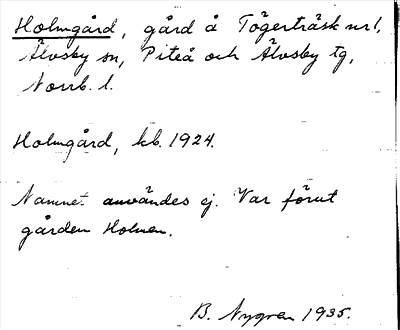 Holmgård, gård å Tögerträsk nr 1,
Älvsby sn, Piteå och Älvsby tg,
Norrb. l.
Holmgård, kb. 1924.
Namnet användes ej. Var förut
gården Holmen.
B. Nygren 1935.